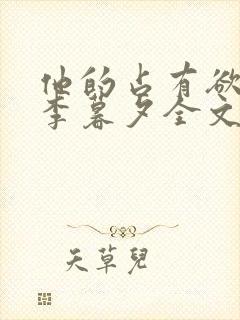 他的占有欲
李暮夕全文
天草兒